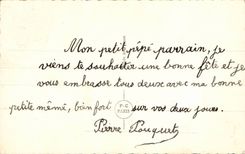 Mon petit pépé parrain, je
viens te souhaiter une bonne fête et je
vous embrasse tous deux avec ma bonne
petite mémé, bien fort sur vos deux joues.
Pierre Pouquet